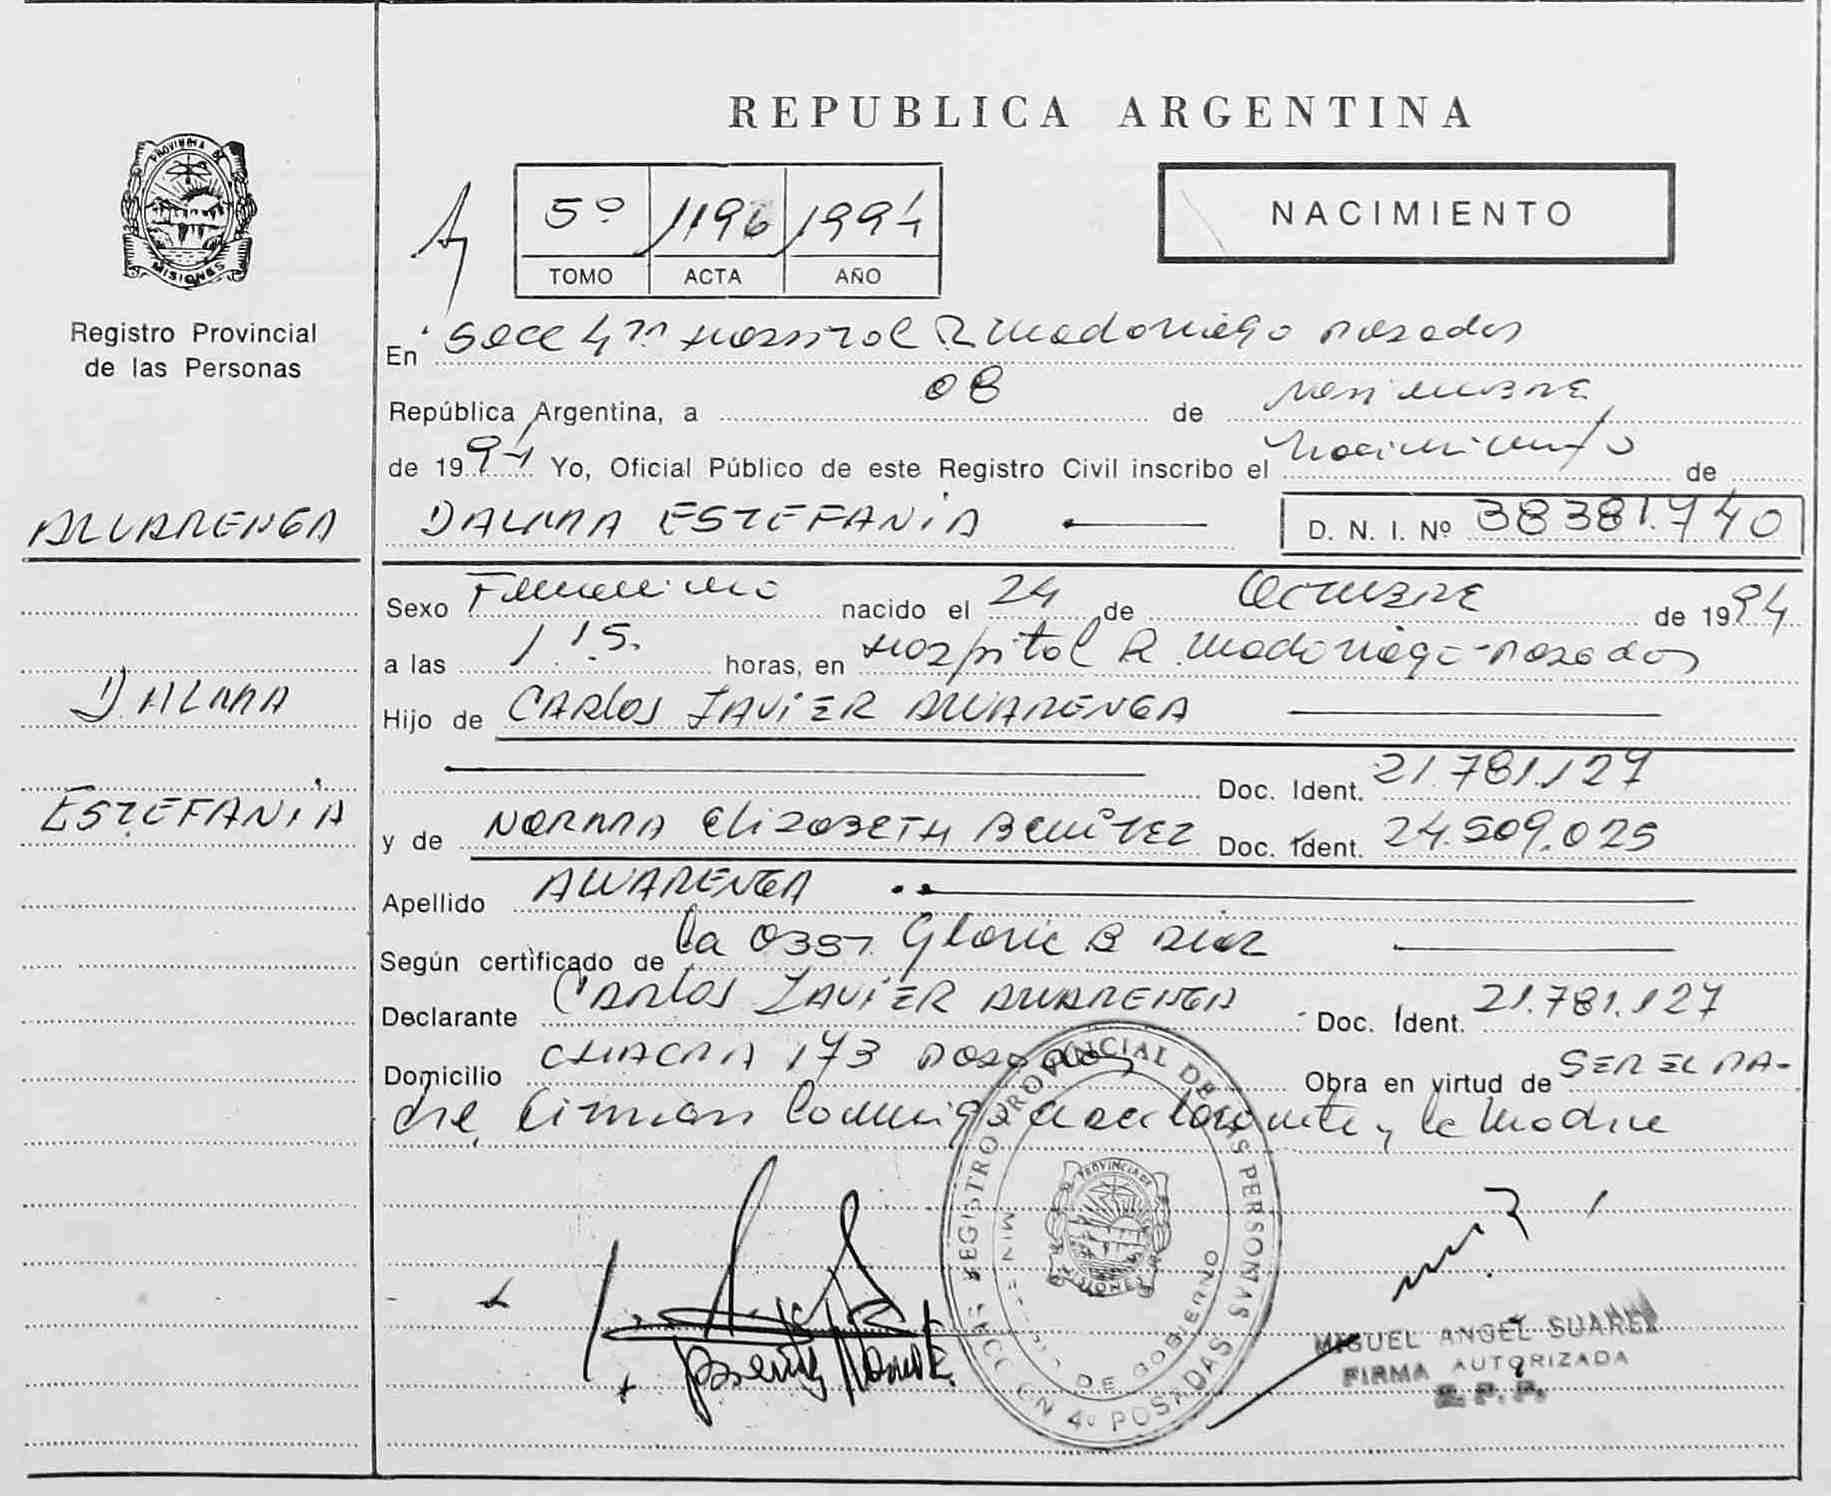 REPUBLICA ARGENTINA
PROVINCIA DE
MISIONES
Registro Provincial
de las Personas
5º 1196 1994
TOMO ACTA AÑO
NACIMIENTO
En Secc 4ta Hospital R Madariaga Posadas
República Argentina, a 08 de Noviembre
de 1994 Yo, Oficial Público de este Registro Civil inscribo el Nacimiento de
ALVARENGA
DALMA ESTEFANIA
D. N. I. Nº 38381.740
Sexo Femenino nacido el 24 de Octubre de 1994
a las 1 15. horas, en Hospital R. Madariaga - Posadas
DALMA
Hijo de CARLOS JAVIER ALVARENGA
Doc. Ident. 21.781.127
ESTEFANIA
y de NORMA Elizabeth Benítez Doc. Ident. 24.509.025
Apellido ALVARENGA
Según certificado de la Obst. Gloria B Diaz
Declarante CARLOS JAVIER ALVARENGA Doc. Ident. 21.781.127
Domicilio CHACRA 173 Posadas Obra en virtud de SER EL PA-
dre, Firman Conmigo el declarante y la Madre
REGISTRO PROVINCIAL DE LAS PERSONAS
DE GOBIERNO
4º POSADAS
PROVINCIA DE
MISIONES
MIGUEL ANGEL SUAREZ
FIRMA AUTORIZADA